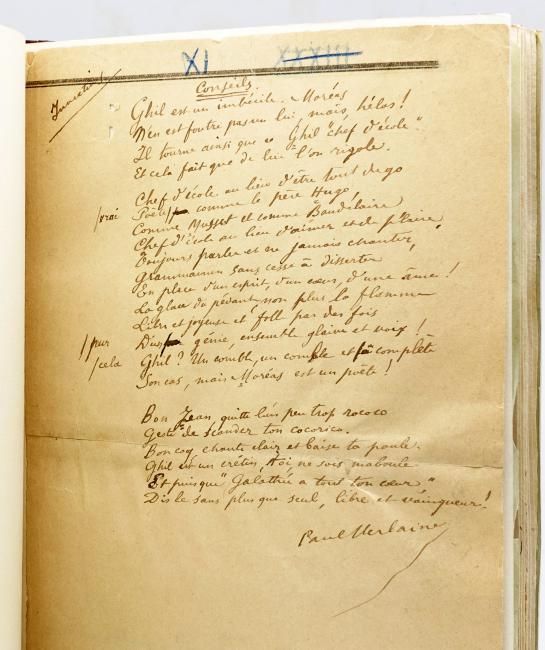 XI XXXIII
Conseils
Ghil est un imbécile. Moréas
N'en est foutre pas un lui, mais, hélas !
Il tourne ainsi que ce Ghil "chef d'école".
Et cela fait que de lui l'on rigole.
Chef d'école au lieu d'être tout de go
/vrai Poète comme le père Hugo,
Comme Musset et comme Baudelaire
Chef d'école au lieu d'aimer et de plaire,
Toujours parler et ne jamais chanter,
Grammairien sans cesse à disserter
En place d'un esprit, d'un cœur, d'une âme !
La glace du pédant, non plus la flamme
Libre et joyeuse et folle par des fois
/pur D'un génie, ensemble glaive et voix !
/cela Ghil ? Un comble, un comble et complète
Son cas, mais Moréas est un poète !
Bon Jean, quitte un peu trop rococo
Geste de scander ton cocorico.
Bon coq, chante clair et baise ta poule.
Ghil est un crétin, toi ne sois maboule
Et puisque "Galathée a tout ton cœur"
Dis le sans plus que seul, libre et vainqueur !
Paul Verlaine